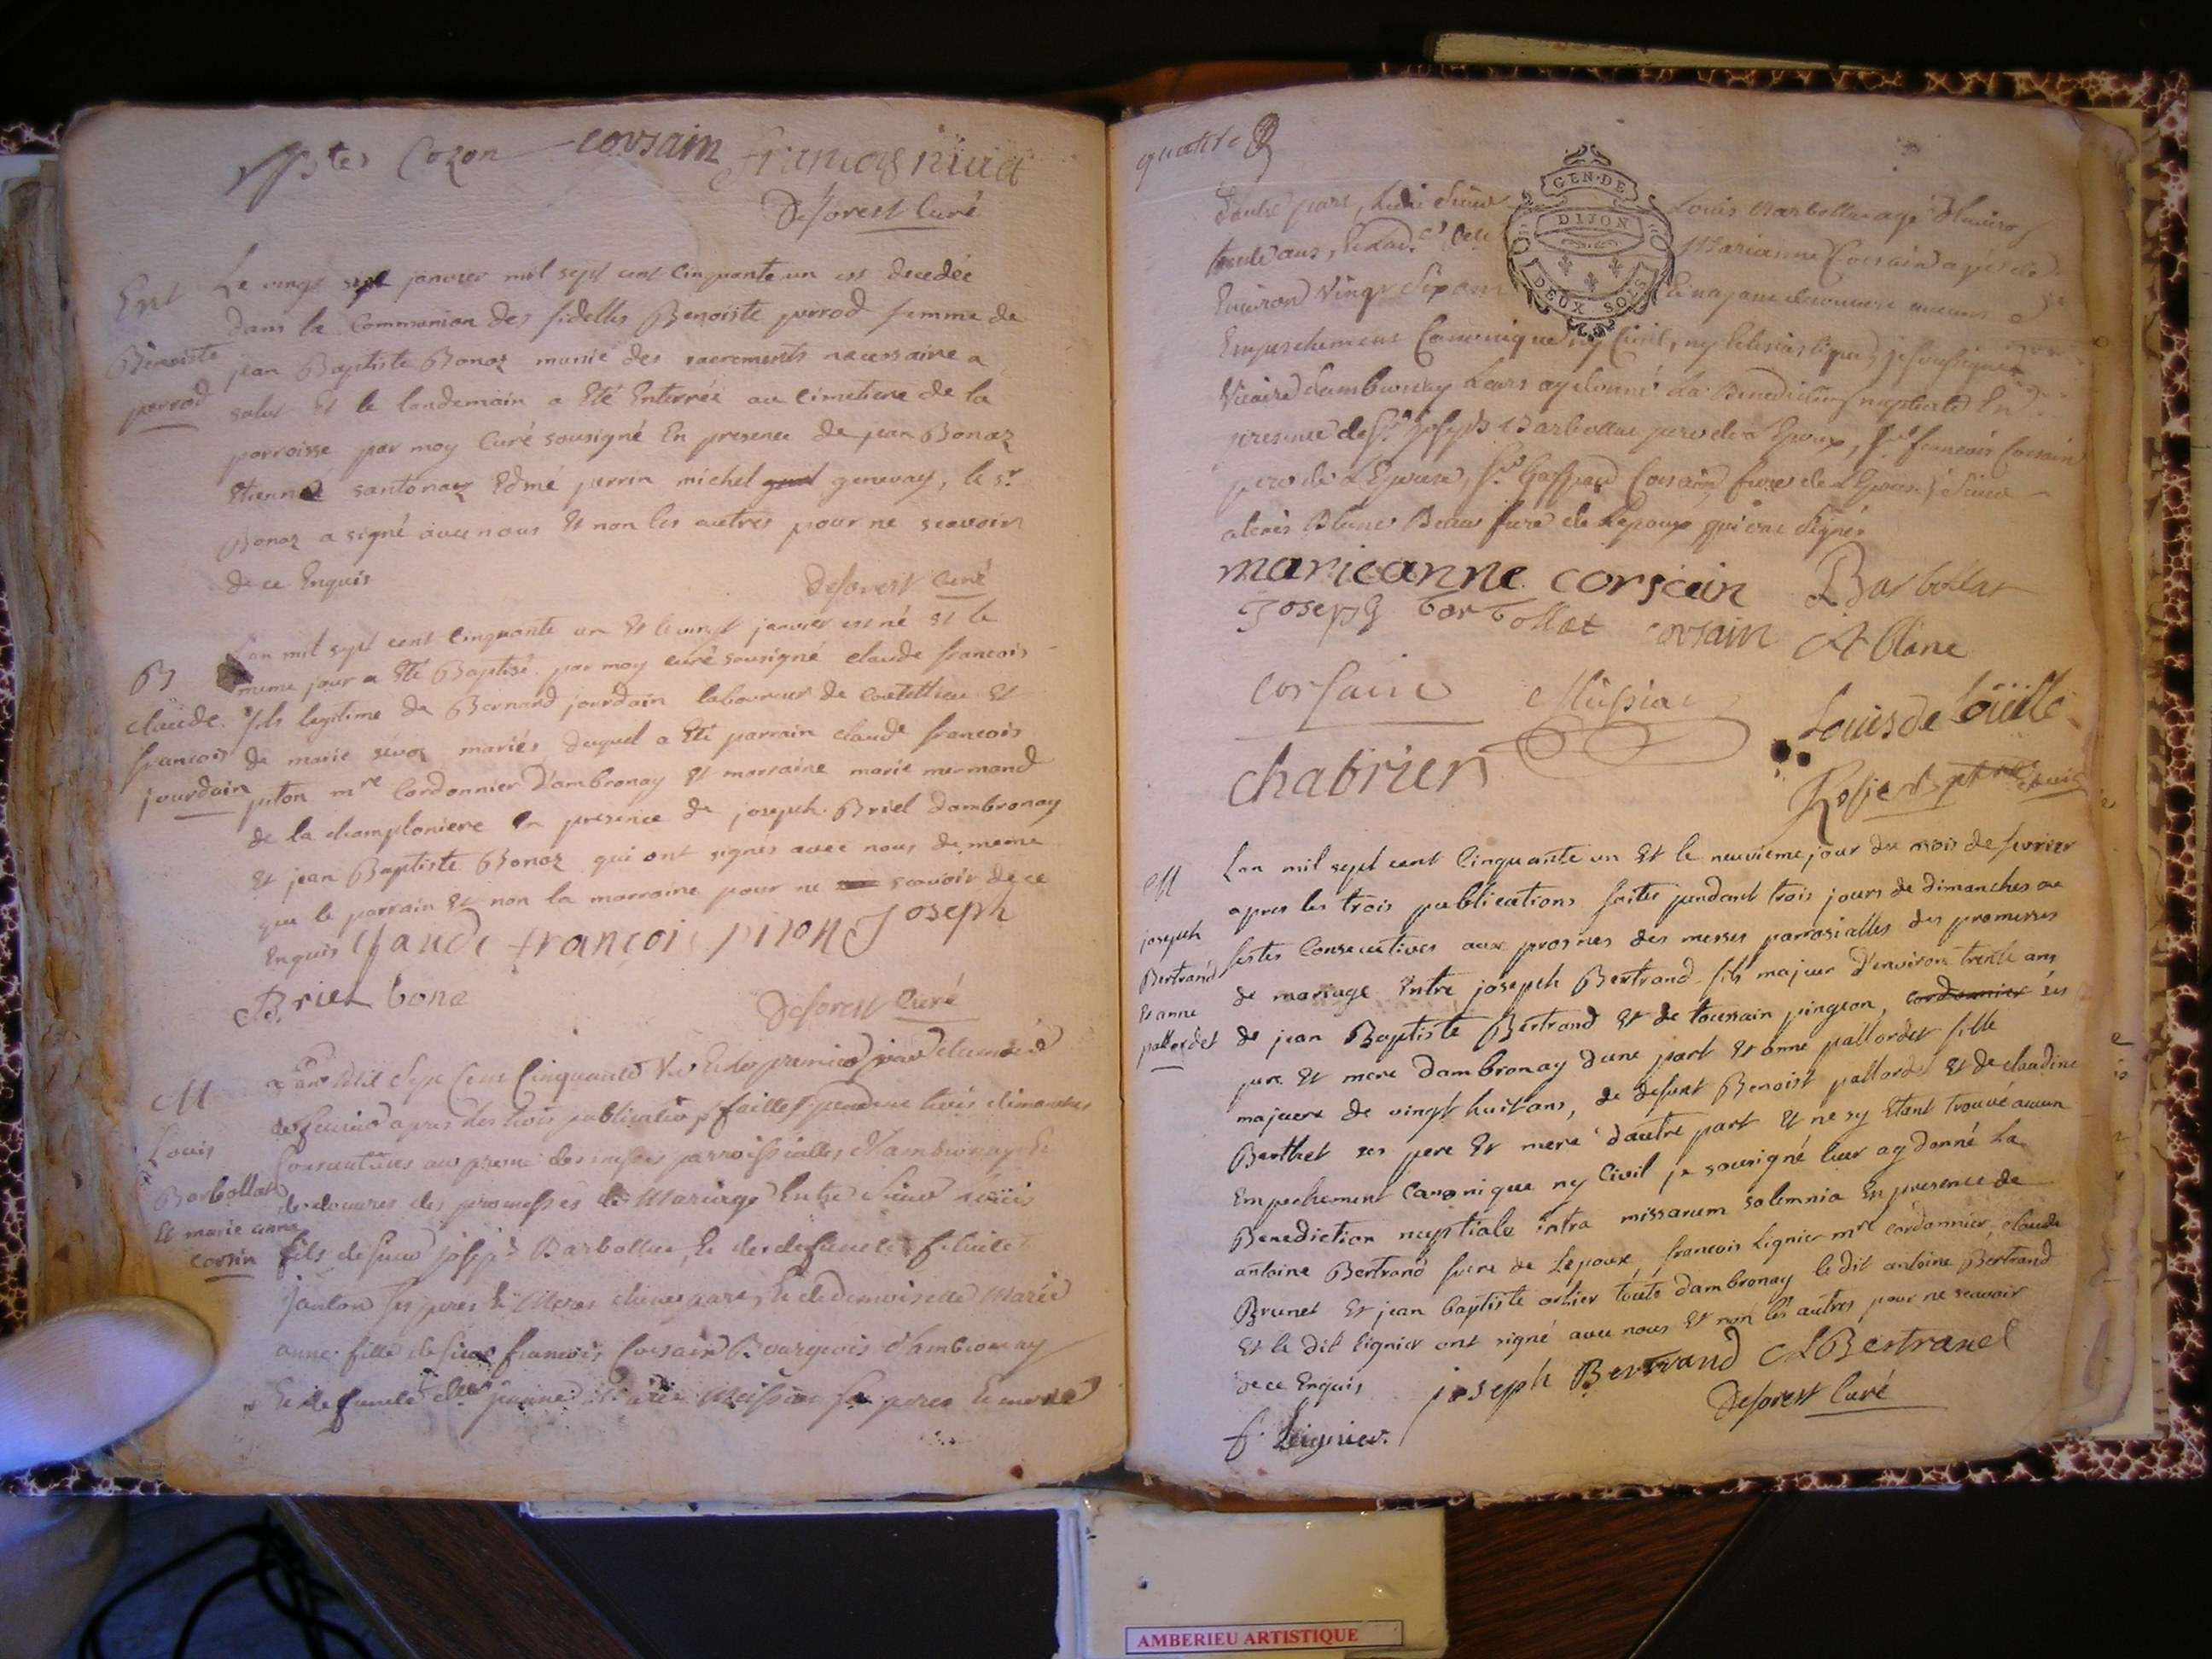 Cozon corsain francois niuet
Deforest Curé
Ent
Benoiste
perrod
Le vingt sept janvier mil sept cent Cinquante un est decedée
dans la Communion des fidelles Benoiste perrod femme de
jean Baptiste Bonaz munie des sacrements necessaire a
salut Et le landemain a Eté Enterrée au Cimetiere de la
parroisse par moy Curé sousigné En presence de jean Bonaz
Etienne santonax Edmé perrin michel genevay, le sr
Bonaz a signé avec nous Et non les autres pour ne scavoir
de ce Enquis
Deforest Curé
B
claude
francois
jourdain
L'an mil sept cent Cinquante un Et le vingt janvier est né Et le
meme jour a Eté Baptisé par moy curé sousigné claude francois
fils legitime de Bernard jourdain laboureur de Coutelieu Et
de marie mariés duquel a Eté parrain claude francois
piton mre Cordonnier D'ambronay Et marraine marie mermand
de la championiere En presence de joseph Briel dambronay
Et jean Baptiste Bonaz qui ont signés avec nous de meme
que le parrain Et non la marraine pour ne scavoir de ce
Enquis Claude françois piton Joseph
Briel bona
Deforest Curé
M
Louis
Barbollat
Et marie anne
corsin
L'an Mil Sept Cent Cinquante Un Et le premier jour du mois
de fevrier apres les trois publications faittes pendant trois dimanches
Consecutives au prone des messes parroissialles d'ambronay Et
de douvres des promesses de Mariage Entre Sieur Louis
fils de sieur joseph Barbollat, Et de defuncte
janton ses pere Et Mere d'une part, Et de demoiselle Marie
anne fille de sieur francois Corsain Bourgeois d'ambronay
Et de functe dlle jeanne Marie Messiat ses pere Et mere
quatre
GEN·DE
DIJON
DEUX SOLS
D'autre part, Ledit Sieur Louis Barbollat agé d'Environ
trente ans, Et lad. dlle Marianne Corsain agée de
Environ Vingt Six ans Et n'ayant decouvert aucuns
Empechement Canonique ny Civil, ny Eclesiastique, je soussigné
Vicaire dambronay Leurs ay donné La Benediction nuptiale En
presence de Sr Joseph Barbollat pere de l'Epoux, Sr francois Corsain
pere de L'Epouse, Sr Gaspard Corsain frere de L'Epouse, Sieur
alexis Blanc Beau frere de Lepoux qui ont Signés
marieanne corsain Barbollat
Joseph barbollat corsain A Blanc
Corsain Messiat Louis de boüille
chabrier
M
joseph
Bertrand
Et anne
pallordet
Lan mil sept cent Cinquante un Et le neuvieme jour du mois de fevrier
apres les trois publications faites pendant trois jours de dimanches ou
festes Consecutives aux prosnes des messes parrosialles des promesses
de mariage Entre joseph Bertrand fils majeur d'environ trente ans
de jean Baptiste Bertrand Et de toussain pingeon, cordonnier ses
pere Et mere Dambronay dune part Et anne pallordet fille
majeure de vingt huit ans, de defunt Benoist pallordet Et de claudine
Berthet ses pere Et mere dautre part Et ne sy Etant trouvé aucun
Empechement Canonique ny Civil je sousigné leur ay donné La
Benediction nuptiale intra missarum solemnia En presence de
antoine Bertrand frere de Lepoux, francois Lignier mre cordonnier, claude
Brunet Et jean baptiste orhier touts dambronay le dit antoine Bertrand
Et le dit Lignier ont signé avec nous Et non les autres pour ne scavoir
de ce Enquis joseph Bertrand A Bertrand
Deforest Curé
f. Leignier
AMBERIEU ARTISTIQUE